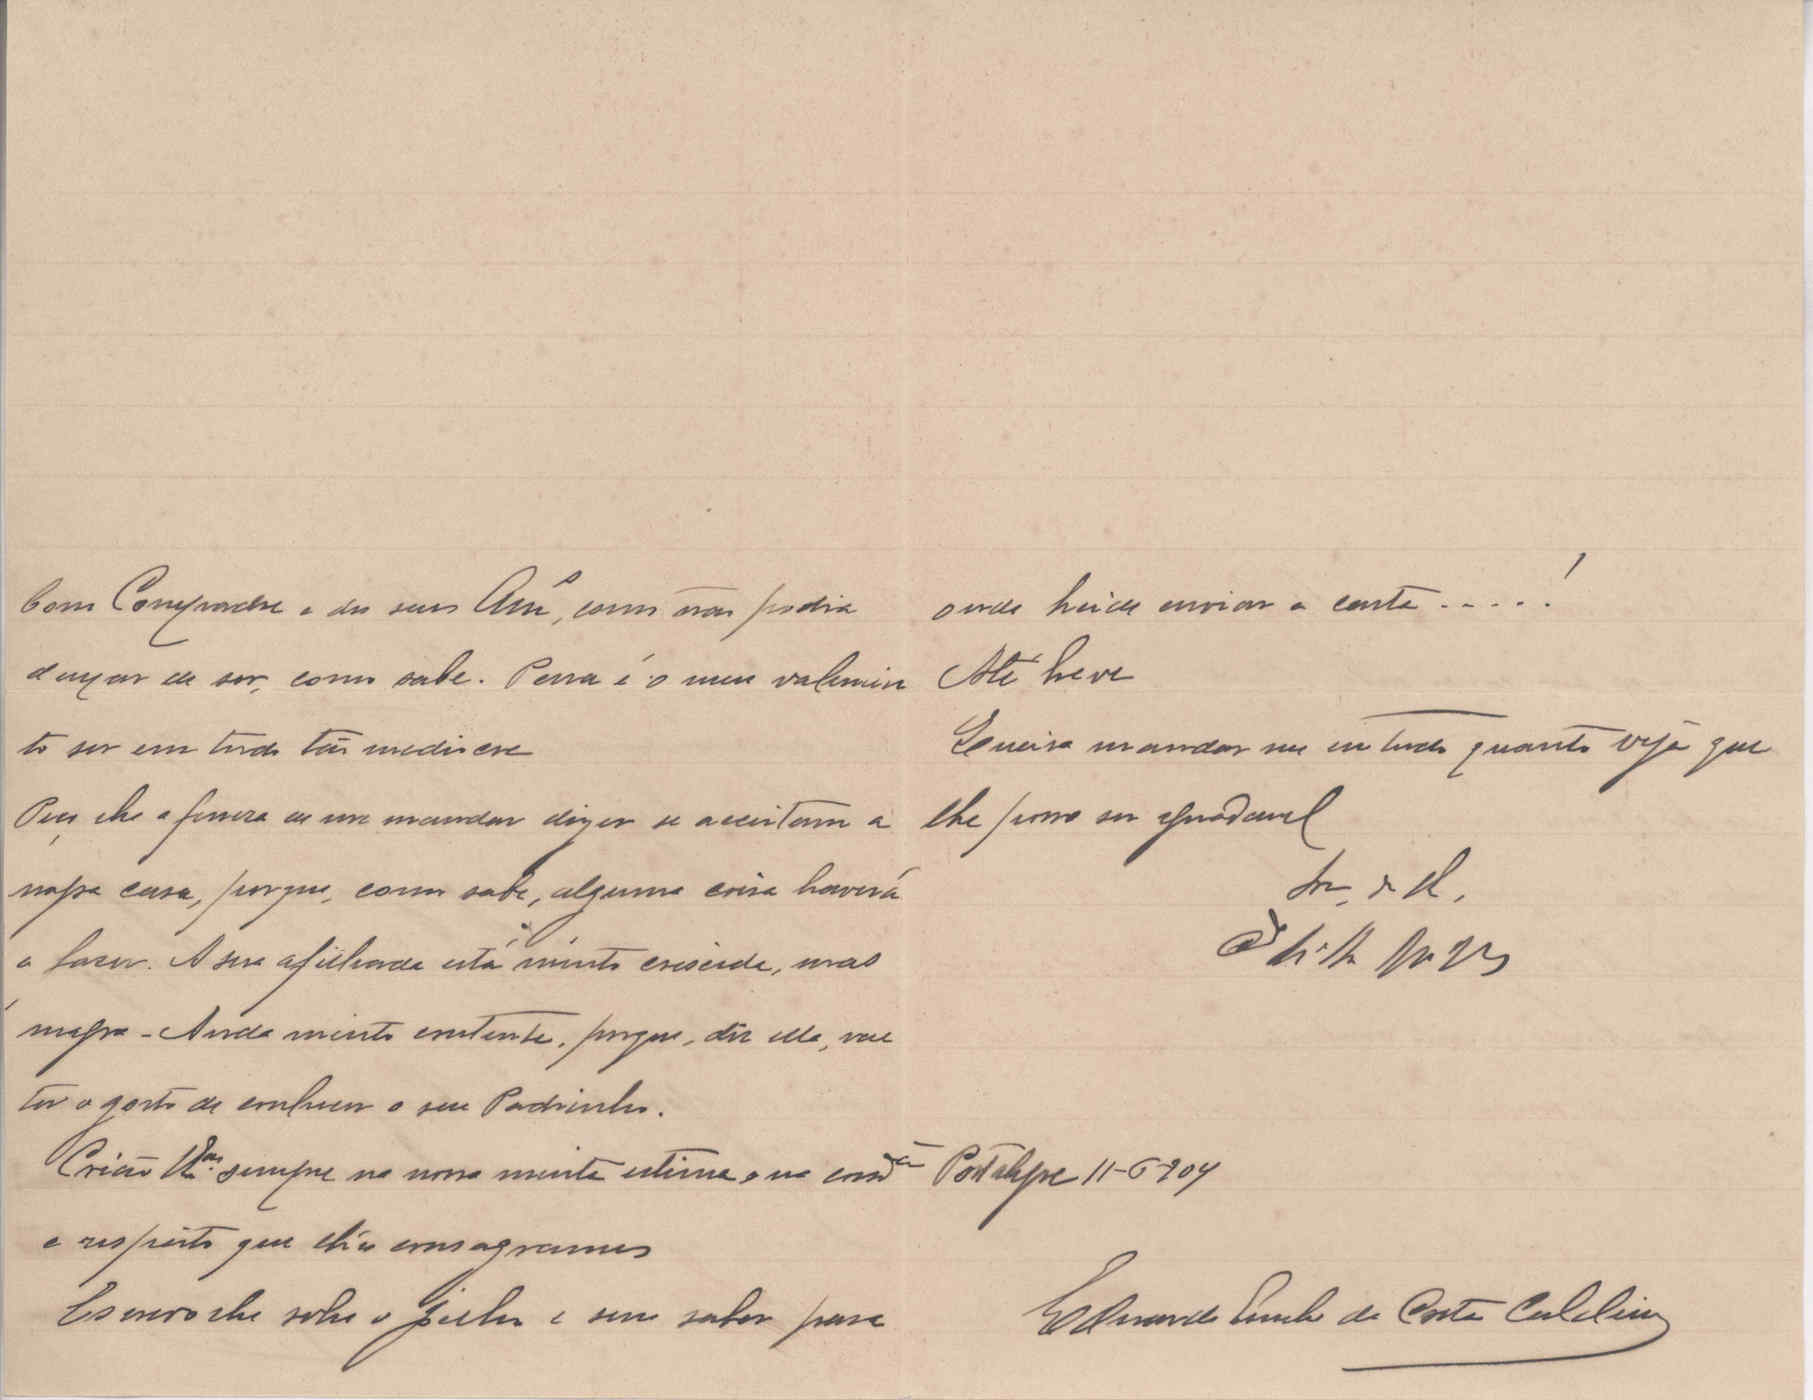 bom Compadre e dos seus Amº, como não podia
deixar de ser, como sabe. Pena é o meu valimen
to ser em tudo tão mediocre
Peço lhe a fineza de me mandar dizer se acceitam a
nossa casa, porque, como sabe, alguma coisa haverá
a fazer. A sua afilhada está muito crescida, mas
magra - Anda muito contente, porque, diz ella, vae
ter o gosto de conhecer o seu Padrinho.
sempre na nossa muita estima e na consdão
e respeito que lhes consagramos
Escrevo lhe sobre o joelho e sem saber para
onde heide enviar a carta . . . . . !
Até breve
Queira mandar me em tudo quanto veja que
lhe posso ser agradavel
Portalegre 11-6-904
Eduardo da Costa